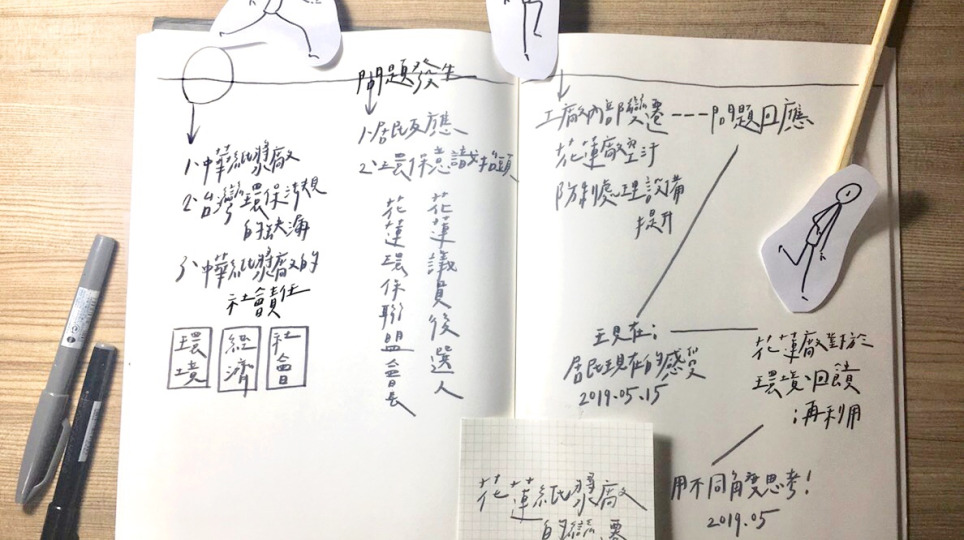 1、中華紙漿廠
2、台灣環保法規
的缺漏
3、中華紙漿廠的
社會責任
環境
經濟
社會
問題發生
1、居民反應
2、環保意識抬頭
花蓮議員後選人
花蓮環保聯盟會長
工廠內部變遷---問題回應
花蓮廠空汙
防制處理設備
提升
現在:
居民現在的感受
2019.05.15
花蓮廠對於
環境、回饋
;再利用
用不同角度思考!
2019.05
花蓮紙漿廠
的